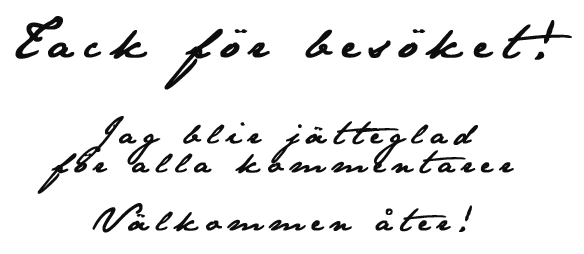 Tack för besöket!
Jag blir jätteglad
för alla kommentarer
Välkommen åter!